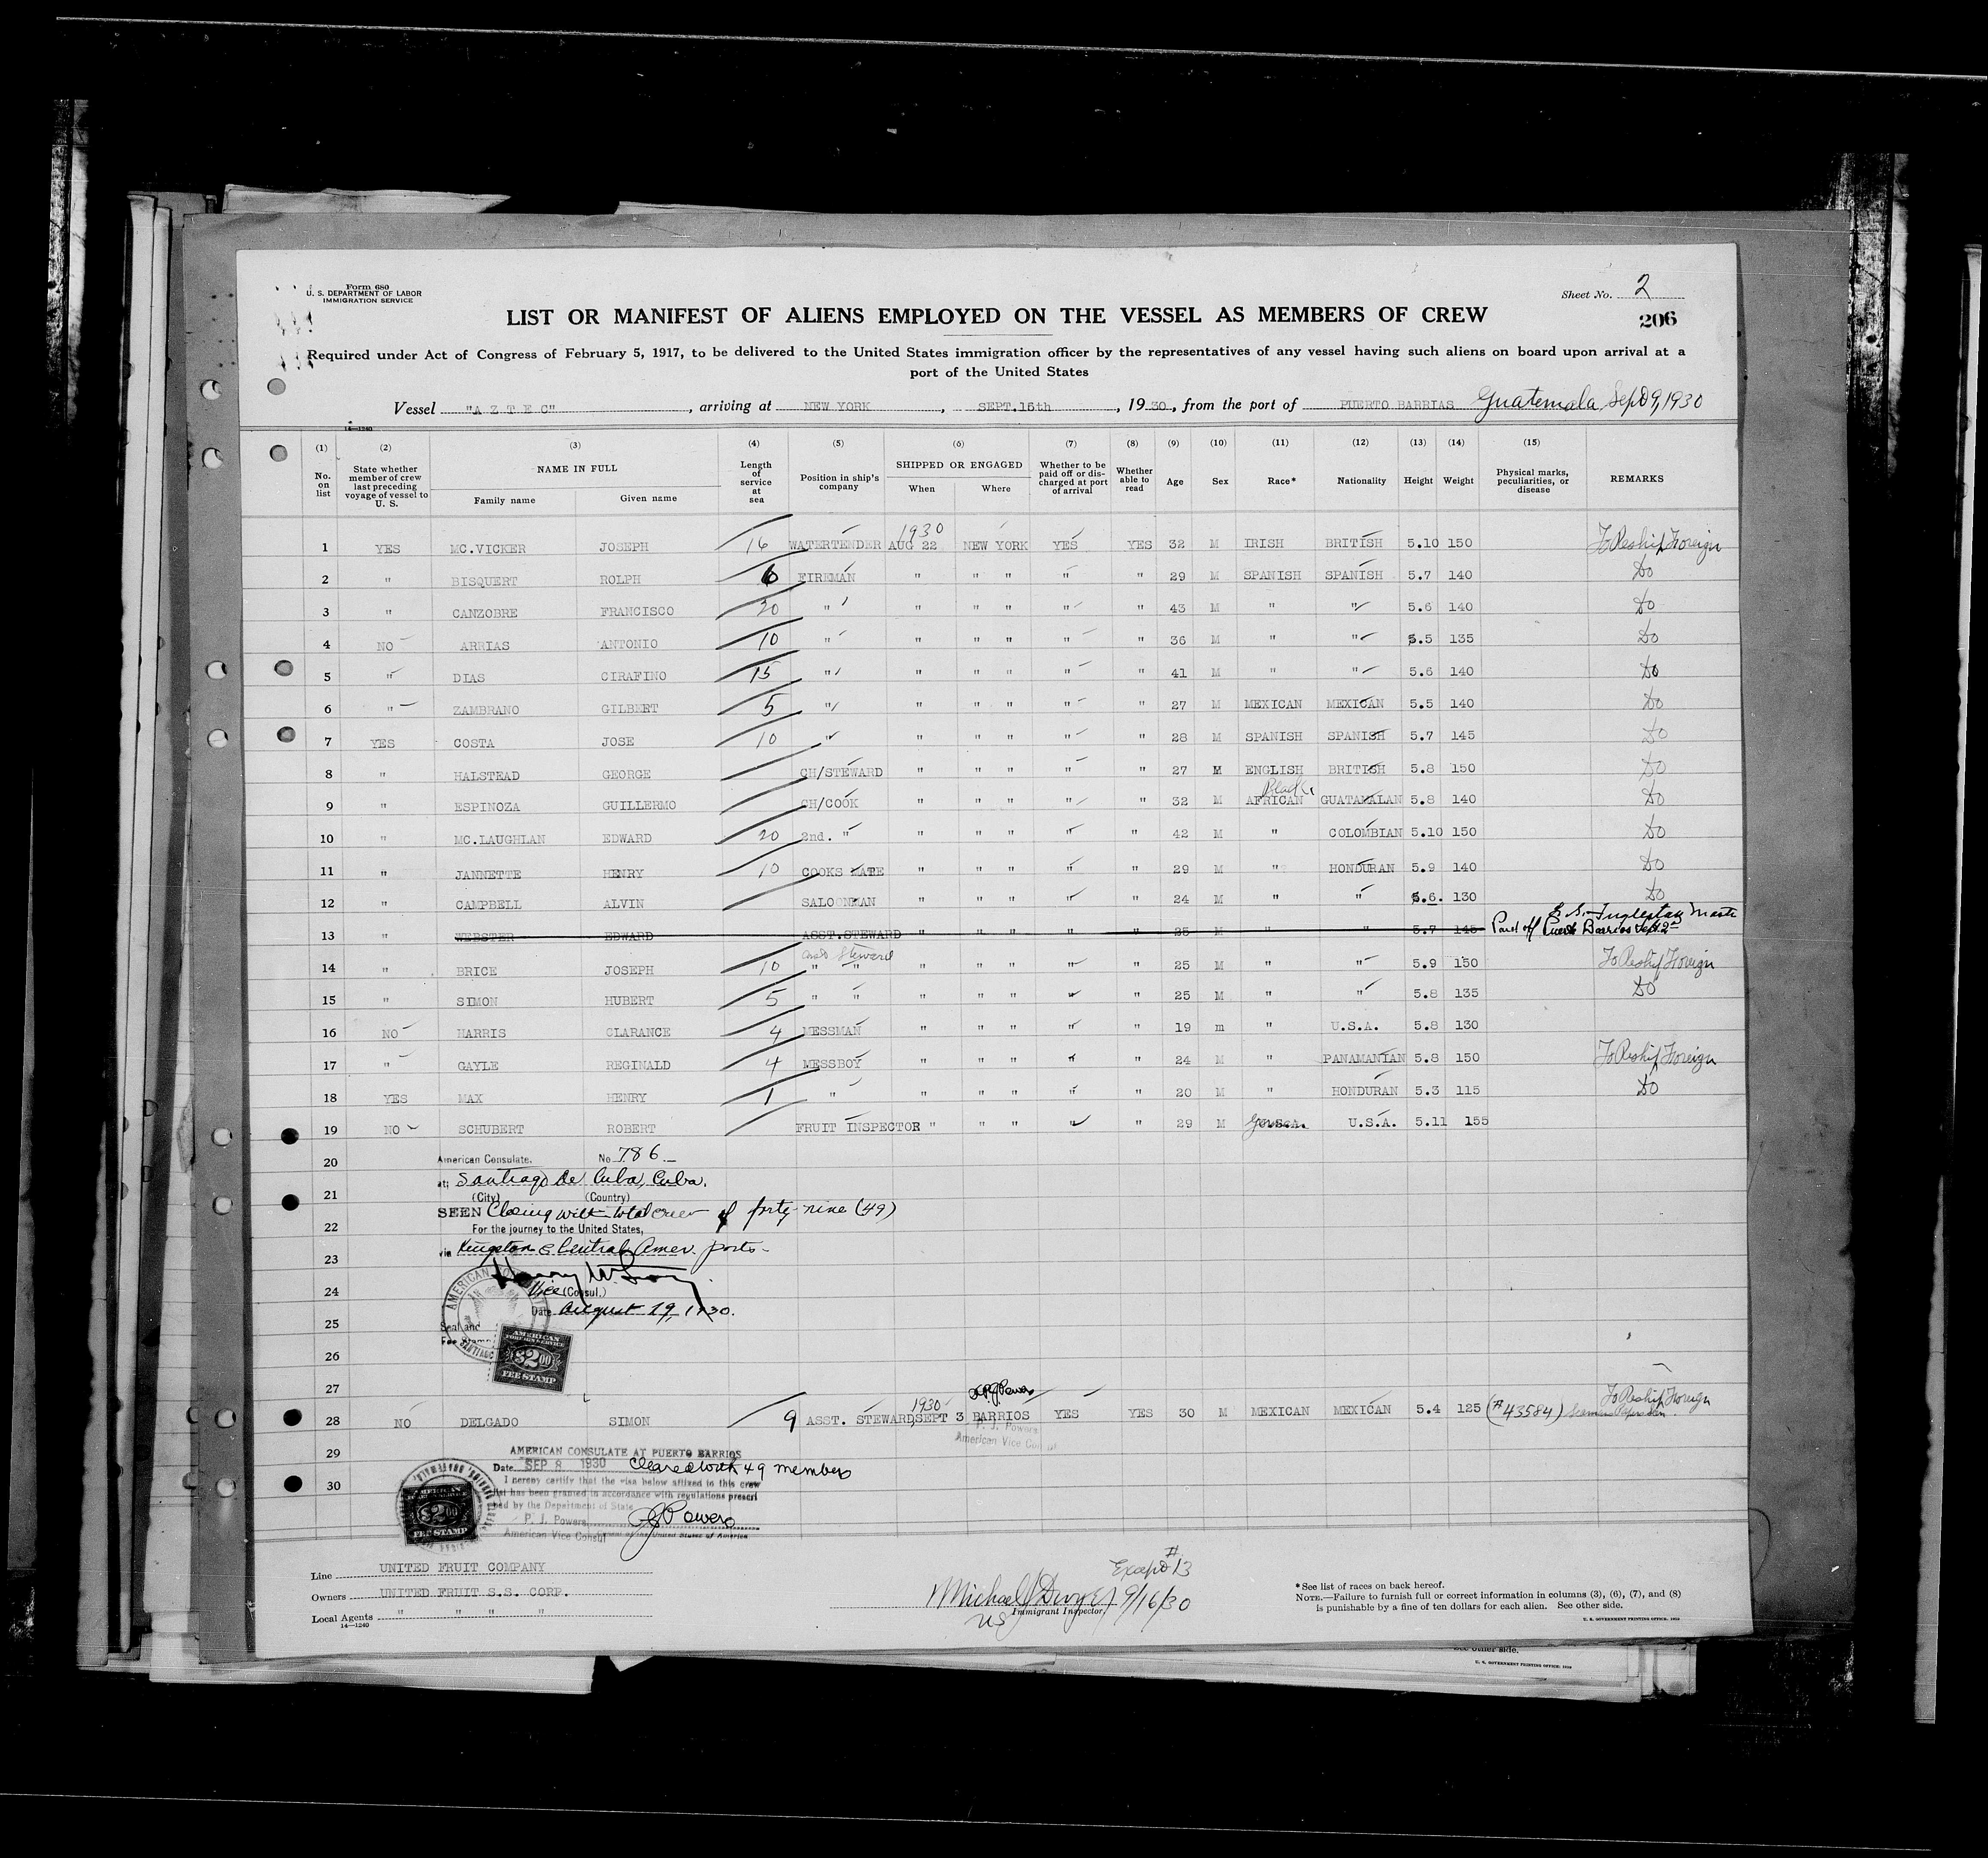 Form 680
U. S. DEPARTMENT OF LABOR
IMMIGRATION SERVICE
Sheet No. 2
206
LIST OR MANIFEST OF ALIENS EMPLOYED ON THE VESSEL AS MEMBERS OF CREW
Required under Act of Congress of February 5, 1917, to be delivered to the United States immigration officer by the representatives of any vessel having such aliens on board upon arrival at a
port of the United States
Vessel "A Z T E C", arriving at NEW YORK, SEPT.15th, 1930, from the port of PUERTO BARRIAS Guatemala, Sept 9, 1930
14—1240
(1) (2) (3) (4) (5) (6) (7) (8) (9) (10) (11) (12) (13) (14) (15)
No. on list State whether member of crew last preceding voyage of vessel to U. S. NAME IN FULL Family name Given name Length of service at sea Position in ship's company SHIPPED OR ENGAGED When Where Whether to be paid off or discharged at port of arrival Whether able to read Age Sex Race* Nationality Height Weight Physical marks, peculiarities, or disease REMARKS
1930
1 YES MC.VICKER JOSEPH 16 WATERTENDER AUG 22 NEW YORK YES YES 32 M IRISH BRITISH 5.10 150 To Reship Foreign
2 " BISQUERT ROLPH 6 FIREMAN " " " " " 29 M SPANISH SPANISH 5.7 140 Do
3 " CANZOBRE FRANCISCO 20 " " " " " " 43 M " " 5.6 140 Do
4 NO ARRIAS ANTONIO 10 " " " " " " 36 M " " 5.5 135 Do
5 " DIAS CIRAFINO 15 " " " " " " 41 M " " 5.6 140 Do
6 " ZAMBRANO GILBEET 5 " " " " " " 27 M MEXICAN MEXICAN 5.5 140 Do
7 YES COSTA JOSE 10 " " " " " " 28 M SPANISH SPANISH 5.7 145 Do
8 " HALSTEAD GEORGE CH/STEWARD " " " " " 27 M ENGLISH BRITISH 5.8 150 Do
Black
9 " ESPINOZA GUILLERMO CH/COOK " " " " " 32 M AFRICAN GUATAMALAN 5.8 140 Do
10 " MC.LAUGHLAN EDWARD 20 2nd. " " " " " " 42 M " COLOMBIAN 5.10 150 Do
11 " JANNETTE HENRY 10 COOKS MATE " " " " " 29 M " HONDURAN 5.9 140 Do
12 " CAMPBELL ALVIN SALOONMAN " " " " " 24 M " " 5.6. 130 Do
13 " WEBSTER EDWARD ASST.STEWARD " " " " " 25 M " " 5.7 145 Paid off Puerto Barrios Sept. 2nd
Asst Steward
14 " BRICE JOSEPH 10 " " " " " " " 25 M " " 5.9 150 To Reship Foreign
15 " SIMON HUBERT 5 " " " " " " " 25 M " " 5.8 135 Do
16 NO HARRIS CLARANCE 4 MESSMAN " " " " " 19 m " U.S.A. 5.8 130
17 " GAYLE REGINALD 4 MESSBOY " " " " " 24 M " PANAMANIAN 5.8 150 To Reship Foreign
18 YES MAX HENRY 1 " " " " " " 20 M " HONDURAN 5.3 115 Do
19 NO SCHUBERT ROBERT FRUIT INSPECTOR " " " " " 29 M U.S.A. 5.11 155
20 American Consulate. No 786.—
at; Santiago de Cuba, Cuba.
21 (City) (Country)
SEEN Closing with total crew of forty-nine (49)
22 For the journey to the United States,
23 via Kingston & Central Amer. ports—
24 Vice (Consul.)
Date August 29, 1930.
25 Seal and
Fee Stamp
AMERICAN FOREIGN SERVICE $2.00 FEE STAMP
26
27
1930
28 NO DELGADO SIMON 9 ASST. STEWARD, SEPT 3 BARRIOS YES YES 30 M MEXICAN MEXICAN 5.4 125 (#43584) To Reship Foreign
P. J. Powers
American Vice Consul
29 AMERICAN CONSULATE AT PUERTO BARRIOS
Date SEP 8 1930 Cleared with 49 members
30 I hereby certify that the visa below affixed to this crew
list has been granted in accordance with regulations prescri
bed by the Department of State
P. J. Powers PJPowers
American Vice Consul of the United States of America
$2.00 FEE STAMP
Line UNITED FRUIT COMPANY
Owners UNITED FRUIT S.S. CORP.
Local Agents " " " "
14—1240
Except #13
Michael J Dwyer 9/16/30
US Immigrant Inspector
*See list of races on back hereof.
NOTE.—Failure to furnish full or correct information in columns (3), (6), (7), and (8)
is punishable by a fine of ten dollars for each alien. See other side.
U. S. GOVERNMENT PRINTING OFFICE: 1930
See other side.
U. S. GOVERNMENT PRINTING OFFICE: 1930